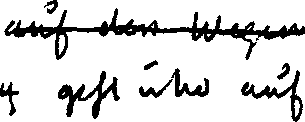 auf den Wegen
& geht über auf